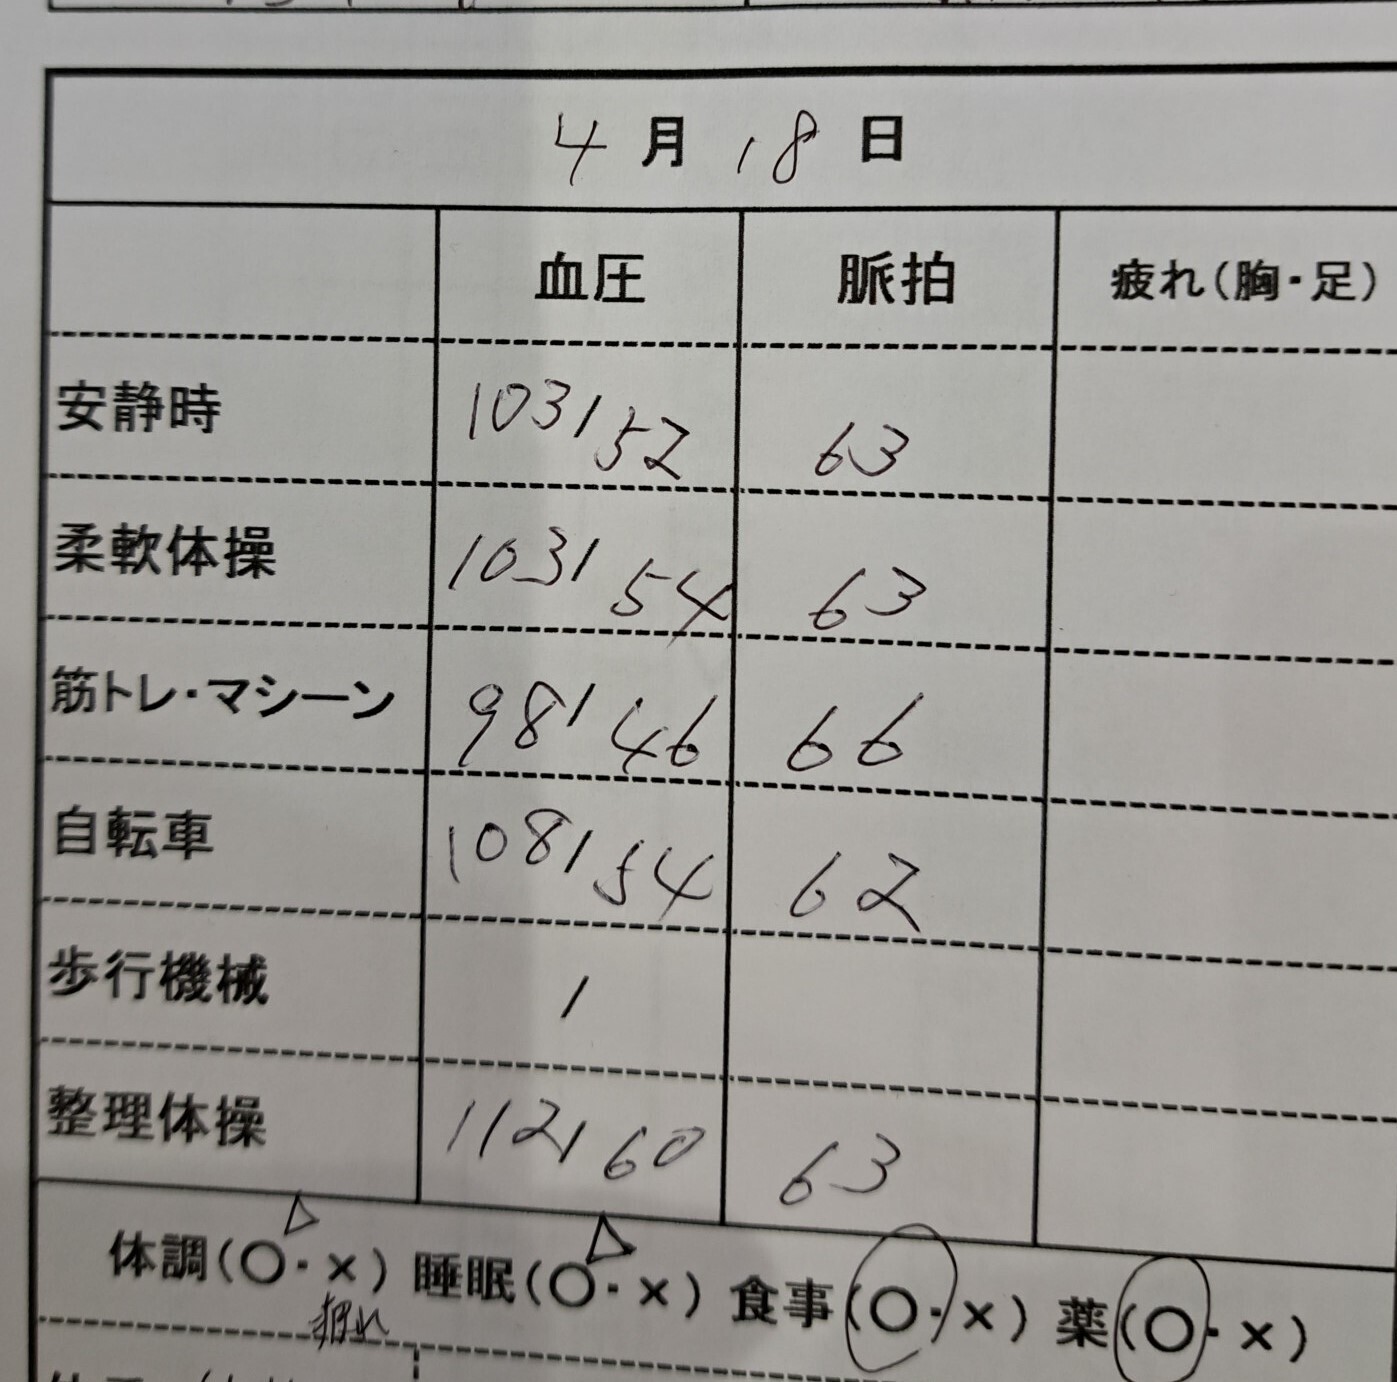 4月18日
血圧 脈拍 疲れ(胸・足)
安静時 103/52 63
柔軟体操 103/54 63
筋トレ・マシーン 98/46 66
自転車 108/54 62
歩行機械 /
整理体操 112/60 63
△ △
体調(○・×)睡眠(○・×)食事(○・×)薬(○・×)
疲れ